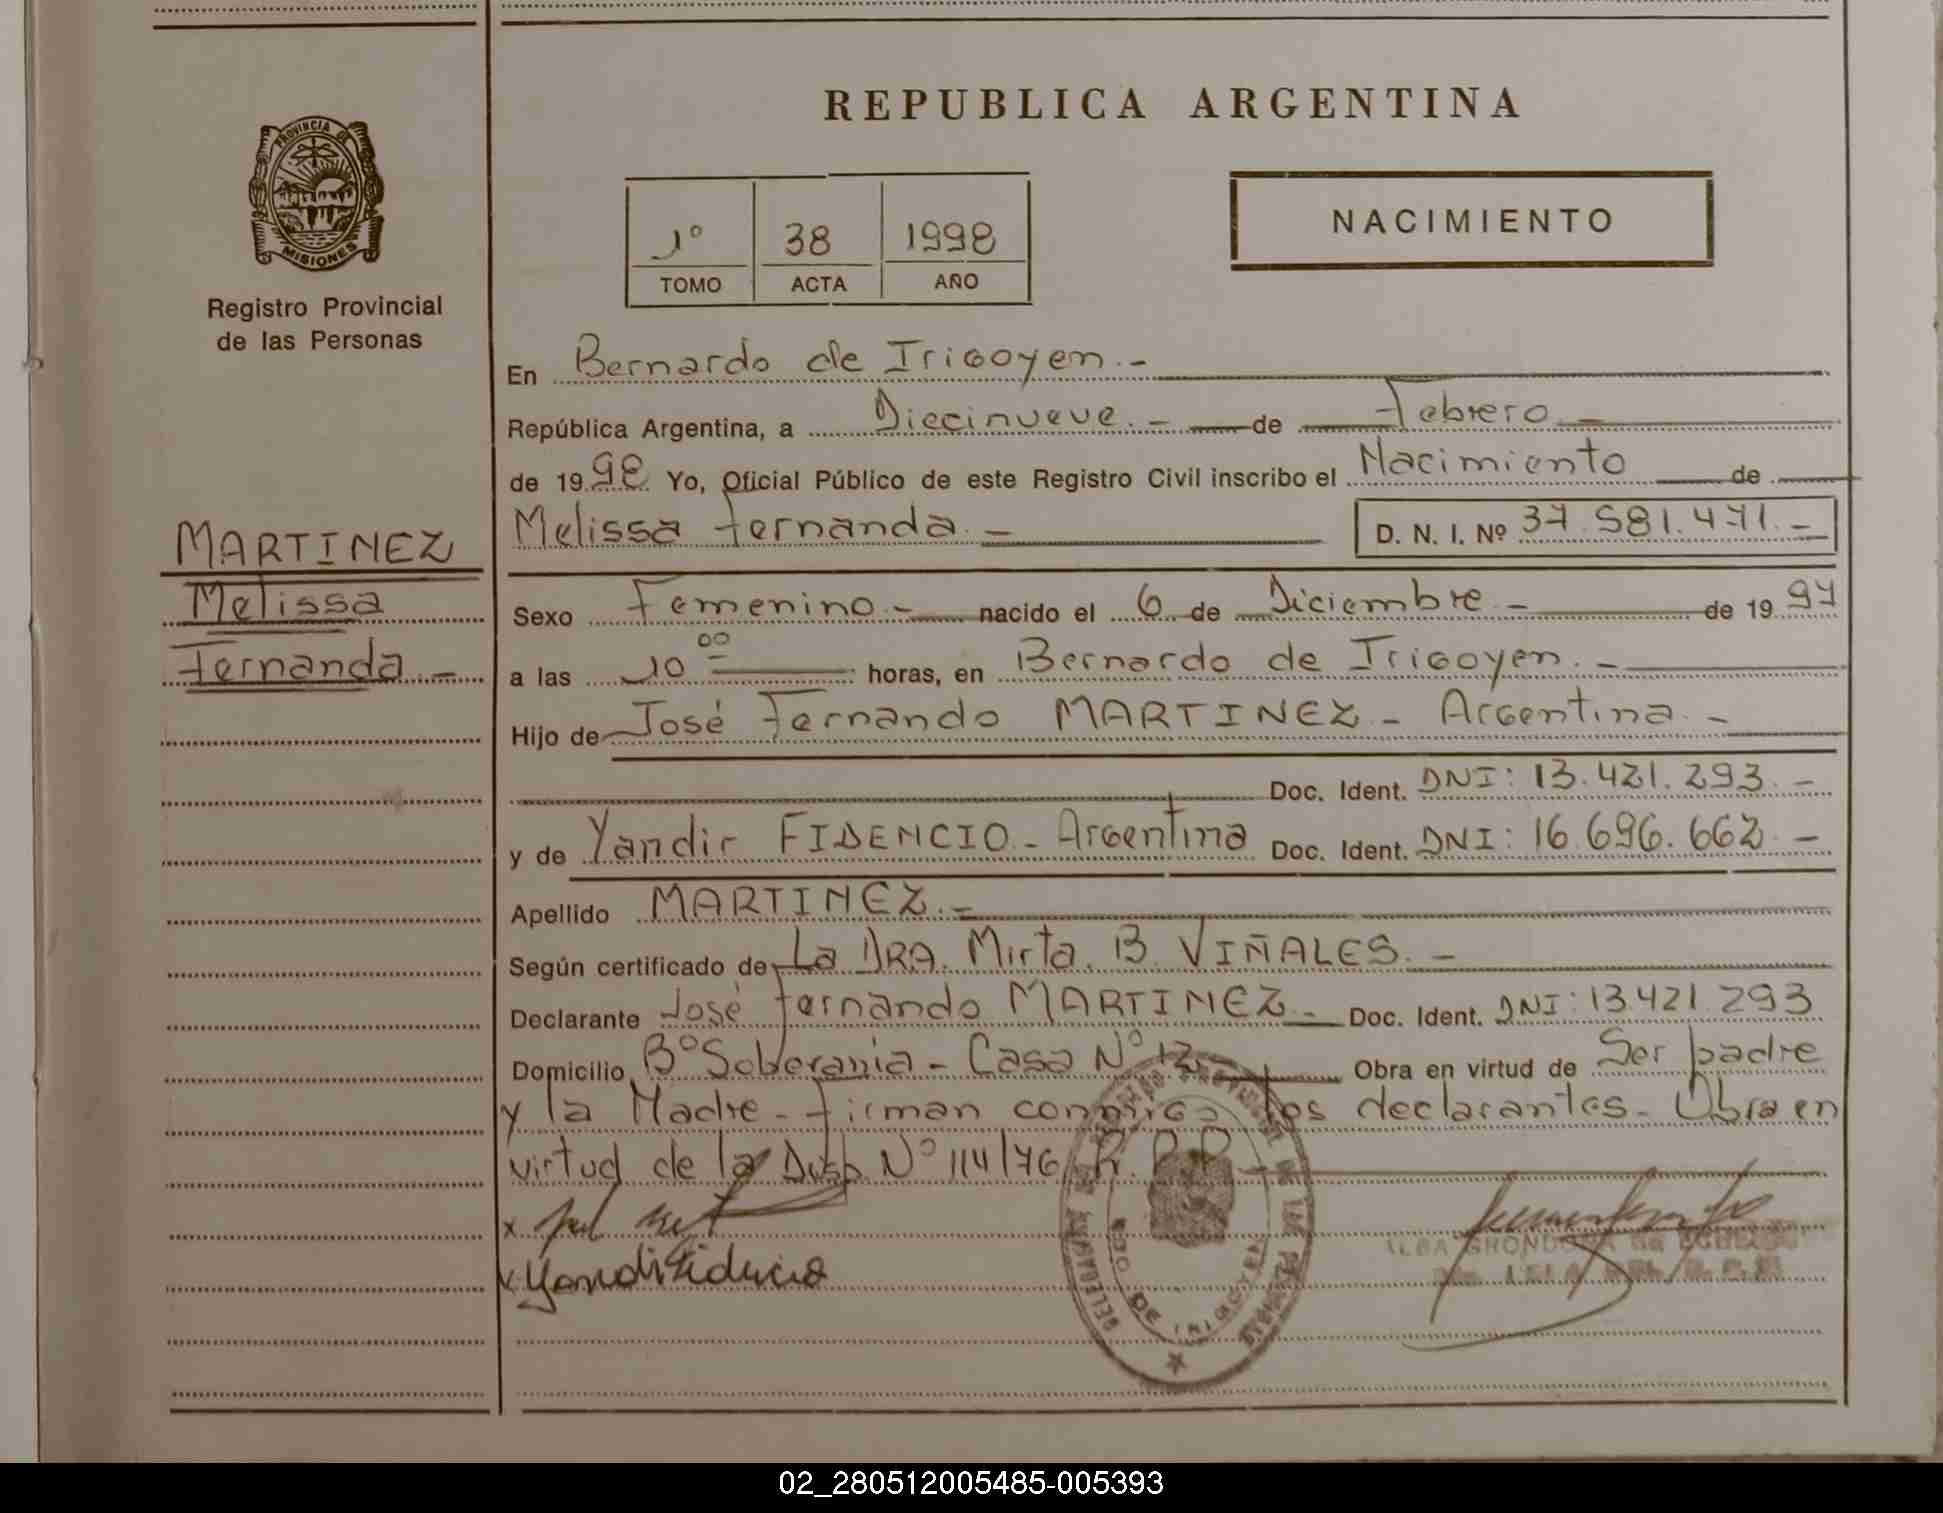 REPUBLICA ARGENTINA
PROVINCIA DE MISIONES
Registro Provincial
de las Personas
1º 38 1998
TOMO ACTA AÑO
NACIMIENTO
En Bernardo de Irigoyen.-
República Argentina, a Diecinueve.- de Febrero.-
de 1998. Yo, Oficial Público de este Registro Civil inscribo el Nacimiento de
Melissa Fernanda.- D. N. I. Nº 37.581.471.-
MARTINEZ
Melissa
Fernanda.-
Sexo Femenino.- nacido el 6 de Diciembre.- de 1997
a las 10 00 horas, en Bernardo de Irigoyen.-
Hijo de José Fernando MARTINEZ- Argentina.-
Doc. Ident. DNI: 13.421.293.-
y de Yandir FIDENCIO- Argentina Doc. Ident. DNI: 16.696.662.-
Apellido MARTINEZ.-
Según certificado de La DRA. Mirta. B. VIÑALES.-
Declarante José Fernando MARTINEZ- Doc. Ident. DNI: 13.421.293
Domicilio Bº Soberania- Casa Nº 12- Obra en virtud de Ser padre
y la Madre- Firman conmigo los declarantes- Obra en
virtud de la Disp Nº 114/76 R.P.P.-
x
x Yandir Fidencio
DE IRIGOYEN
02_280512005485-005393